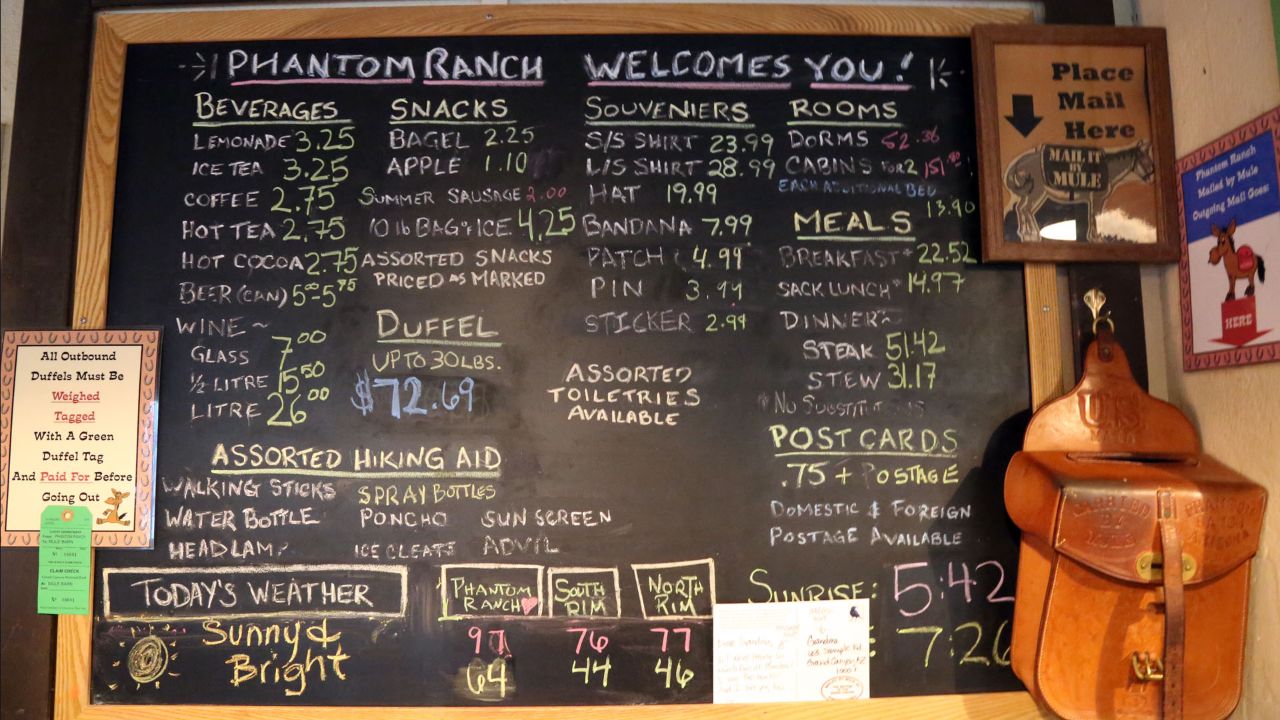 PHANTOM RANCH WELCOMES YOU!
BEVERAGES
LEMONADE 3.25
ICE TEA 3.25
COFFEE 2.75
HOT TEA 2.75
HOT COCOA 2.75
BEER (CAN) 5.00-5.75
WINE ~
GLASS 7.00
1/2 LITRE 15.50
LITRE 26.00
SNACKS
BAGEL 2.25
APPLE 1.10
SUMMER SAUSAGE 2.00
10 lb BAG of ICE 4.25
ASSORTED SNACKS
PRICED AS MARKED
DUFFEL
UP TO 30 LBS.
$72.69
SOUVENIERS
S/S SHIRT 23.99
L/S SHIRT 28.99
HAT 19.99
BANDANA 7.99
PATCH 4.99
PIN 3.99
STICKER 2.99
ASSORTED
TOILETRIES
AVAILABLE
ROOMS
DORMS 52.36
CABINS FOR 2 151
EACH ADDITIONAL BED
13.90
MEALS
BREAKFAST* 22.52
SACK LUNCH* 14.97
DINNER~
STEAK 51.42
STEW 31.17
*NO
POSTCARDS
.75 + POSTAGE
DOMESTIC & FOREIGN
POSTAGE AVAILABLE
ASSORTED HIKING AID
WALKING STICKS SPRAY BOTTLES
WATER BOTTLE PONCHO SUNSCREEN
HEADLAMP ICE CLEATS ADVIL
TODAY'S WEATHER
Sunny &
Bright
PHANTOM
RANCH
97
64
SOUTH
RIM
76
44
NORTH
RIM
77
46
SUNRISE: 5:42
7:26
All Outbound
Duffels Must Be
Weighed
Tagged
With A Green
Duffel Tag
And Paid For Before
Going Out
CLAIM CHECK
Place
Mail
Here
MAIL IT
BY
MULE
Phantom Ranch
Mailed by Mule
Outgoing Mail Goes:
HERE
U.S.
Dear Grandma,
Grandma